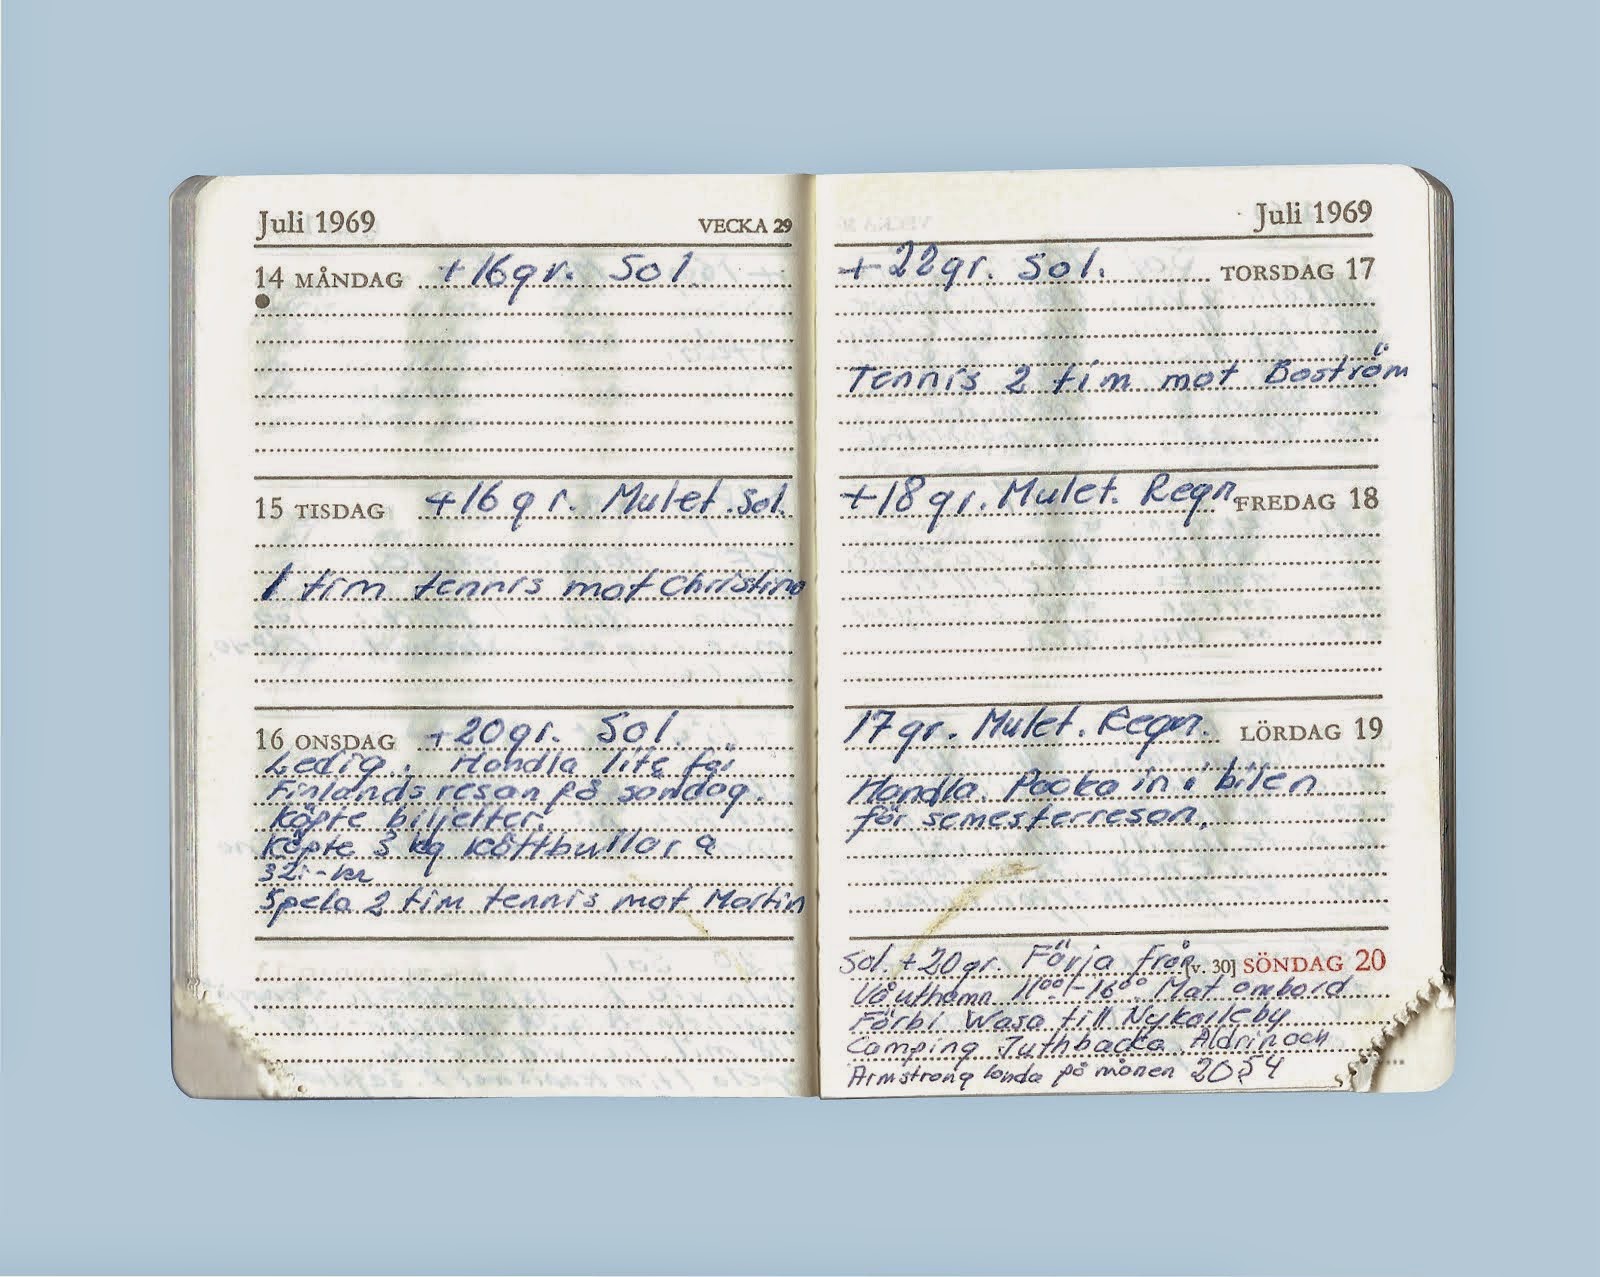 Juli 1969 VECKA 29
14 MÅNDAG +16gr. Sol.
15 TISDAG +16gr. Mulet. Sol.
1 tim tennis mot Christina
16 ONSDAG +20gr. Sol.
Ledig. Handla lite för
Finlandsresan på söndag.
Köpte biljetter.
Köpte 3 kg köttbullar a
32:- kr
Spela 2 tim tennis mot Martin
Juli 1969
+22gr. Sol. TORSDAG 17
Tennis 2 tim mot Boström
+18gr. Mulet. Regn FREDAG 18
17gr. Mulet. Regn. LÖRDAG 19
Handla. Packa in i bilen
för semesterresan.
Sol. +20gr. Färja från [v. 30] SÖNDAG 20
11⁰⁰-16⁰⁰ Mat ombord
Förbi Wasa till Nykarleby
Camping Juthbacka. Aldrin och
Armstrong landa på månen 2054